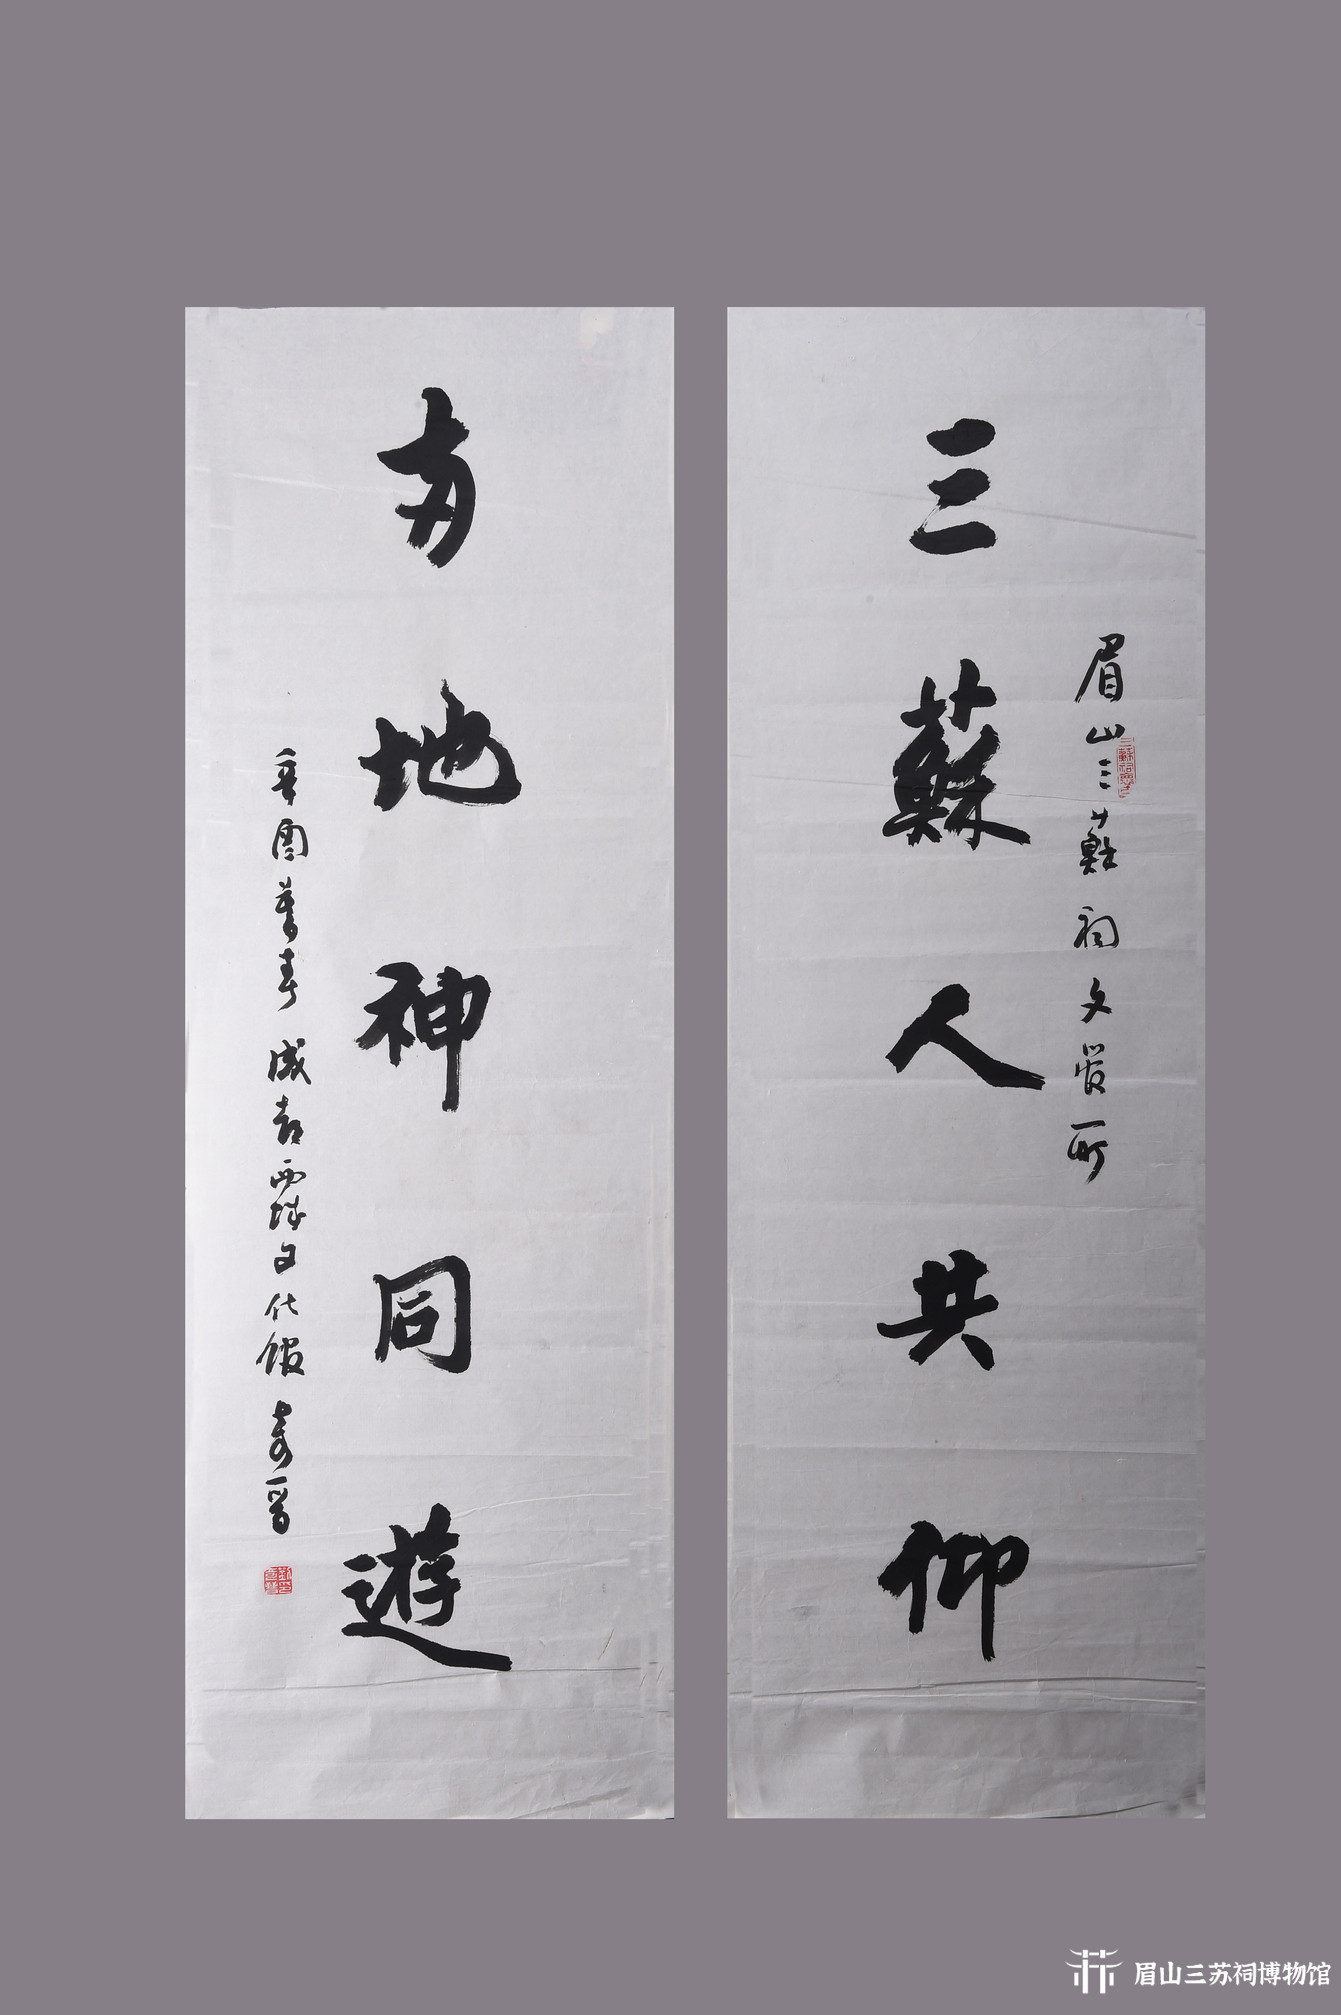 三蘇人共仰
眉山三蘇祠文管所
地神同遊
辛酉暮春 成都西城文化館
眉山三苏祠博物馆